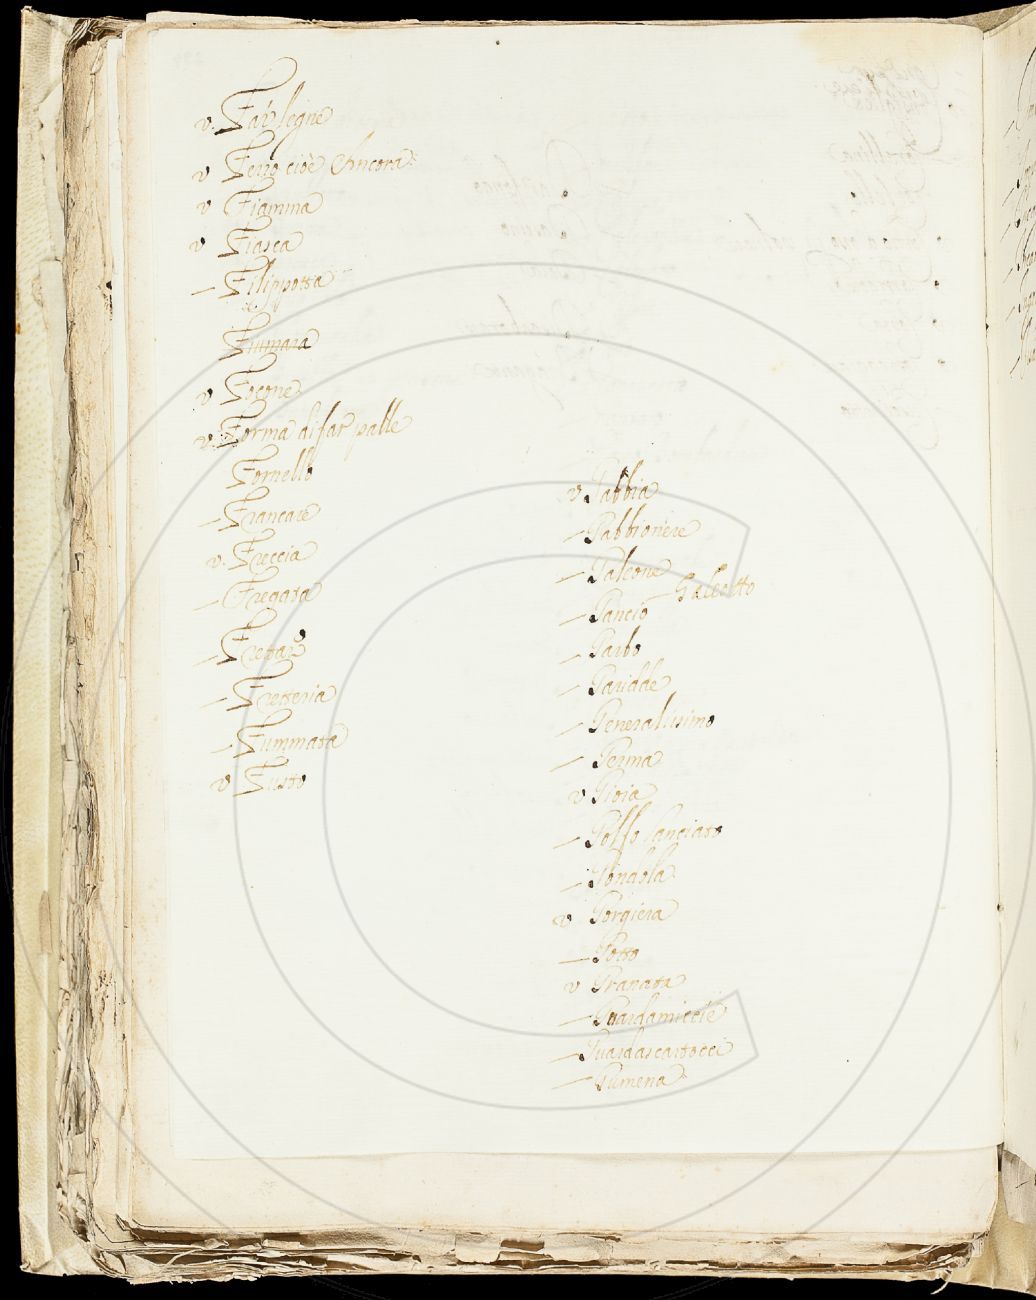 v. Far legne
v Ferro cioè Ancora
v Fiamma
v Fiasca
— Filippotta
Fiumara
v Focone
v. Forma di far palle
Fornello
— Francare
v. Freccia
— Fregata
— Frettar
— Fretteria
— Fummata
v Fusto
v Gabbia
— Gabbioniere
— Galeone
— Galeotto
— Gancio
— Garbo
— Garidde
— Generalissimo
— Gerina
v Gioia
— Golfo lanciato
— Gondola
v Gorgiera
— Gotto
v Granata
— Guardamiccie
— Guardascartocci
— Gumena